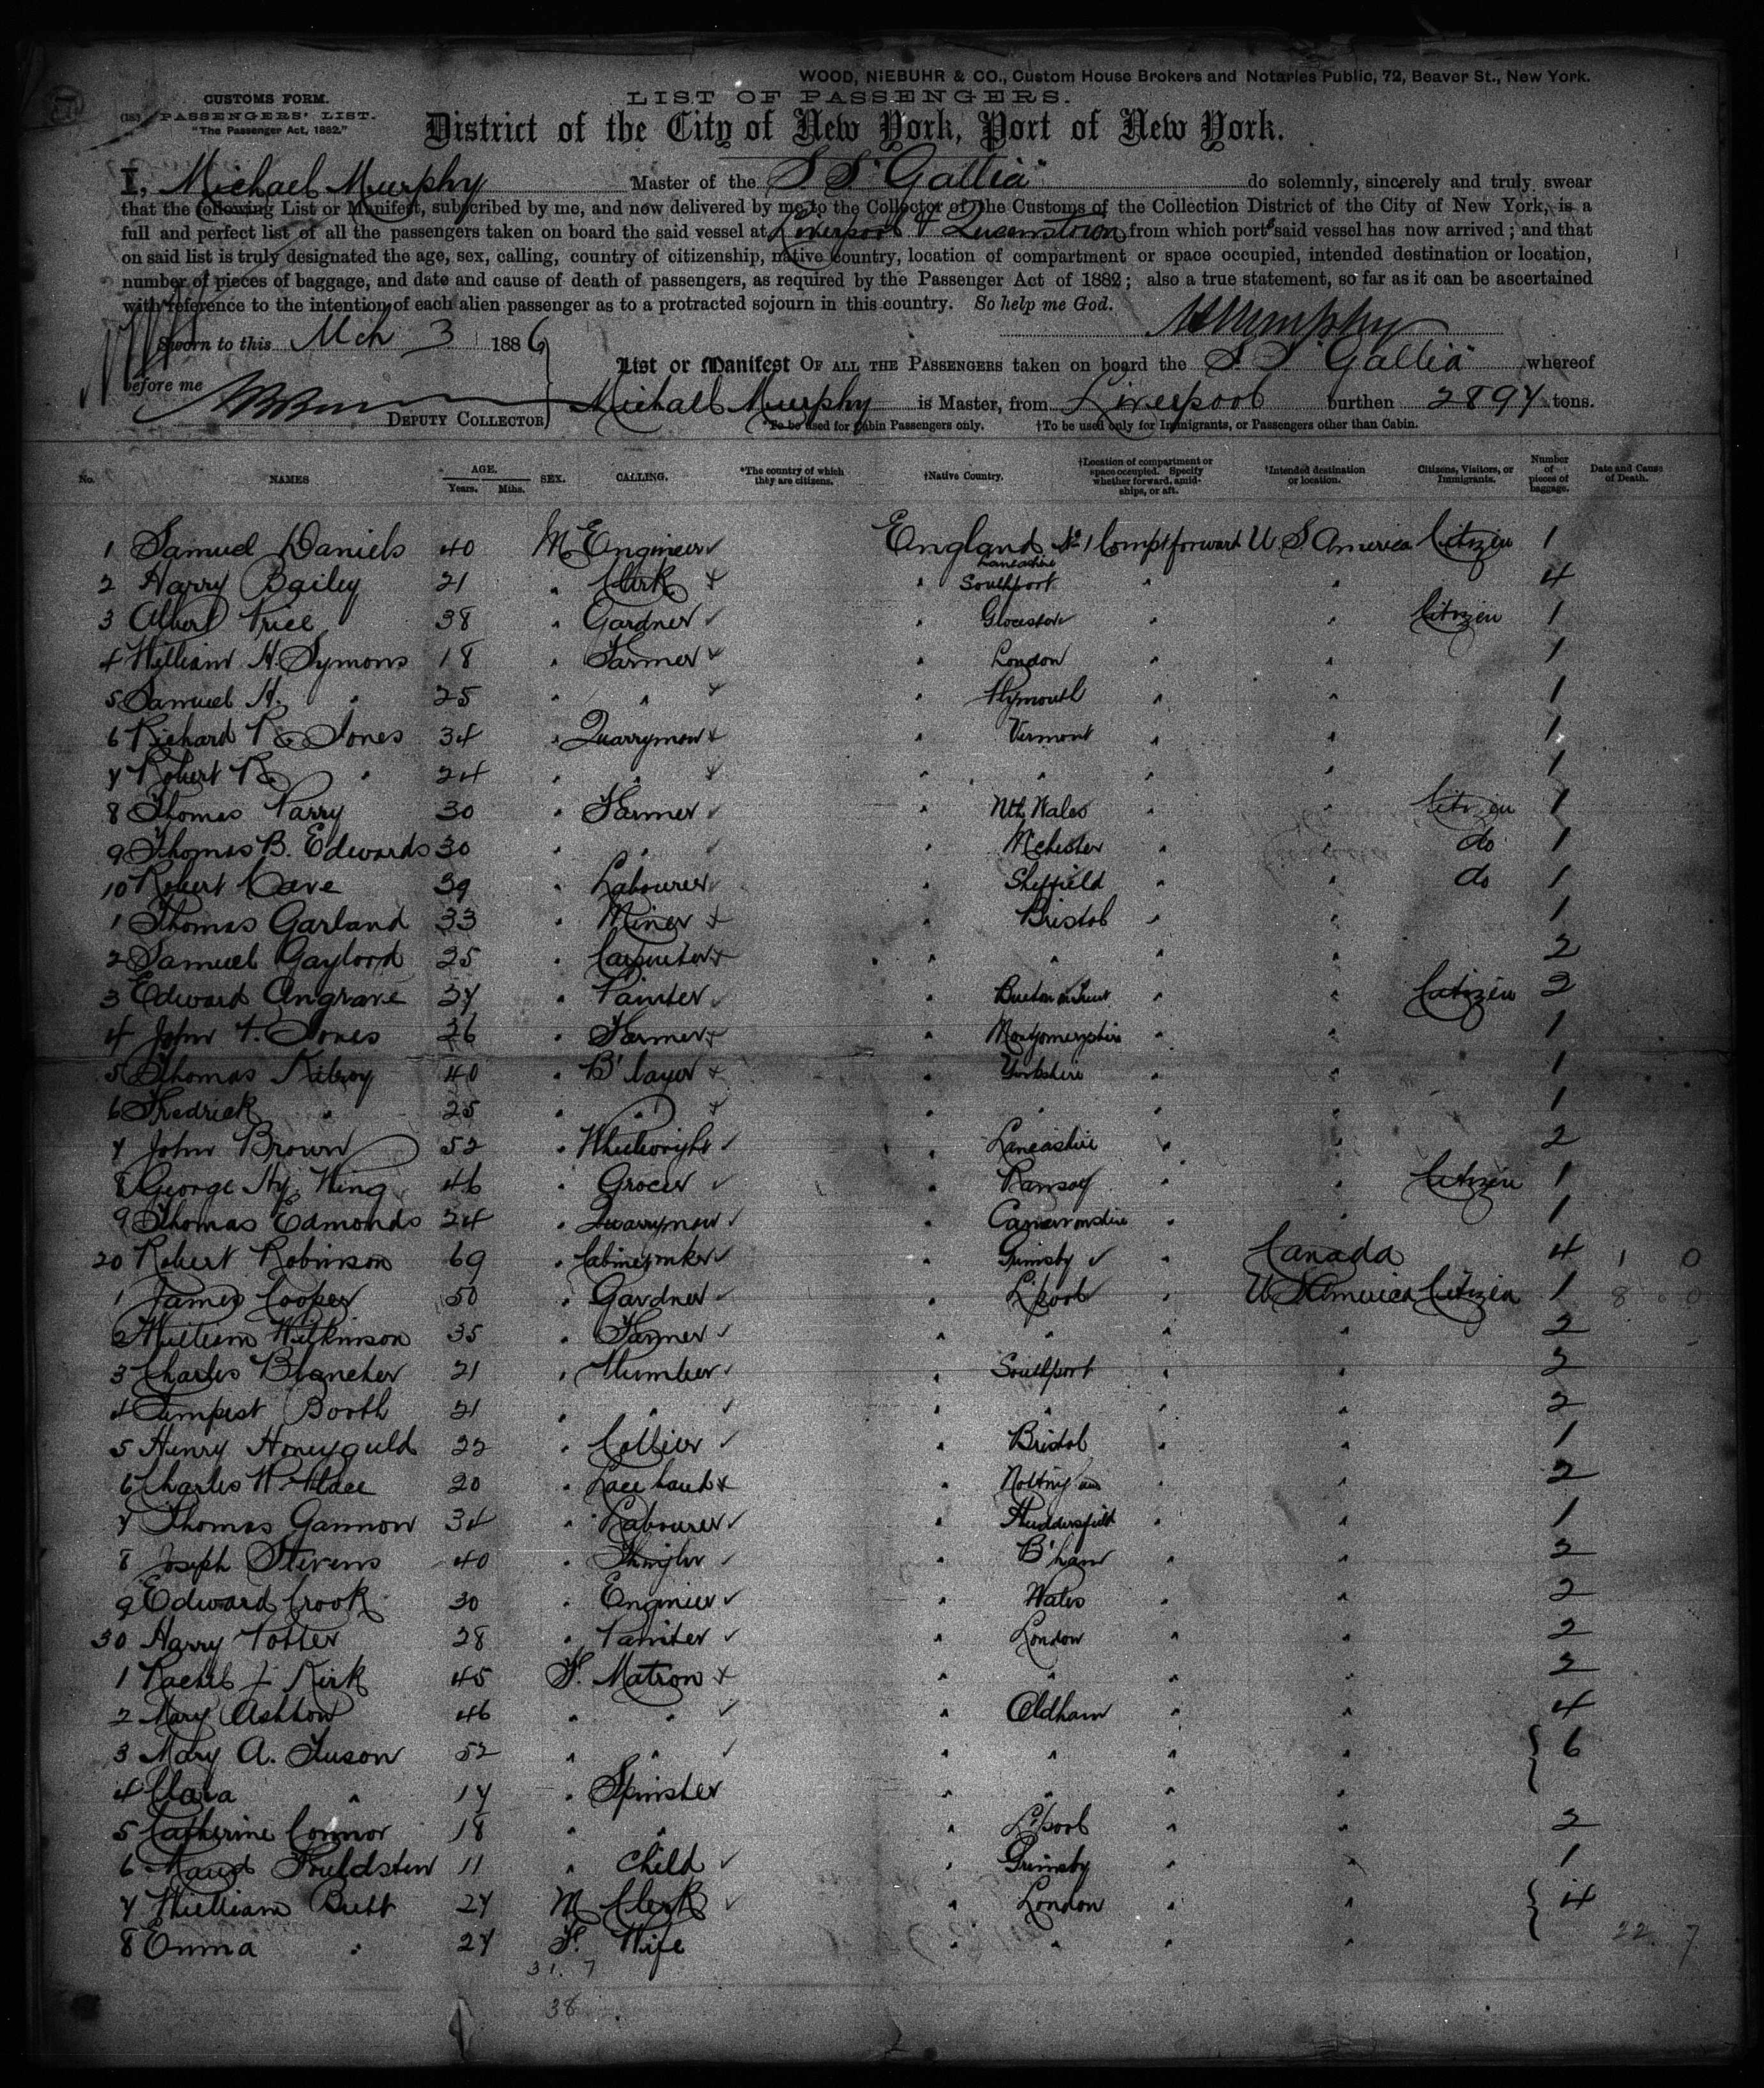 WOOD, NIEBUHR & CO., Custom House Brokers and Notaries Public, 72, Beaver St., New York.
CUSTOMS FORM.
PASSENGERS' LIST.
"The Passenger Act, 1882."
LIST OF PASSENGERS.
District of the City of New York, Port of New York.
I, Michael Murphy Master of the S.S. "Gallia" do solemnly, sincerely and truly swear
that the following List or Manifest, subscribed by me, and now delivered by me to the Collector of the Customs of the Collection District of the City of New York, is a
full and perfect list of all the passengers taken on board the said vessel at Liverpool & Queenstown from which port s said vessel has now arrived; and that
on said list is truly designated the age, sex, calling, country of citizenship, native country, location of compartment or space occupied, intended destination or location,
number of pieces of baggage, and date and cause of death of passengers, as required by the Passenger Act of 1882; also a true statement, so far as it can be ascertained
with reference to the intention of each alien passenger as to a protracted sojourn in this country. So help me God.
M Murphy
Sworn to this Mch 3 1886
before me
DEPUTY COLLECTOR
List or Manifest OF ALL THE PASSENGERS taken on board the S.S. "Gallia" whereof
Michall Murphy is Master, from Liverpool burthen 2894 tons.
*To be used for Cabin Passengers only. †To be used only for Immigrants, or Passengers other than Cabin.
No. NAMES AGE. Years. Mths. SEX. CALLING. *The country of which they are citizens. †Native Country. †Location of compartment or space occupied. Specify whether forward, amidships, or aft. †Intended destination or location. Citizens, Visitors, or Immigrants. Number of pieces of baggage. Date and Cause of Death.
1 Samuel Daniels 40 M Engineer ✓ England No 1 Compt forward U S America Citizen 1
2 Harry Bailey 21 " Clerk + " Lancashire Southport " " 4
3 Albert Price 38 " Gardner ✓ " Glocester " " Citizen 1
4 William H. Symons 18 " Farmer + " London " " 1
5 Samuel H. " 25 " " + " Plymouth " " 1
6 Richard R. Jones 34 " Quarryman + " Vermont " " 1
7 Robert R. " 24 " " + " " " " 1
8 Thomas Parry 30 " Farmer ✓ " Nth Wales " " Citizen 1
9 Thomas B. Edwards 30 " " ✓ " Mchester " " do 1
10 Robert Cave 39 " Labourer ✓ " Sheffield " " do 1
1 Thomas Garland 33 " Miner + " Bristol " " 1
2 Samuel Gaylord 25 " Carpenter + " " " " 2
3 Edward Angrave 37 " Painter ✓ " Burton on Trent " " Citizen 2
4 John T. Jones 26 " Farmer + " Montgomeryshire " " 1
5 Thomas Kilroy 40 " B'layer + " Yorkshire " " 1
6 Fredrick " 25 " " + " " " " 1
7 John Brown 52 " Wheelwright ✓ " Lancashire " " 2
8 George Hy. King 46 " Grocer ✓ " Ramsey " " Citizen 1
9 Thomas Edmonds 24 " Quarryman ✓ " Carnarvonshire " " 1
20 Robert Robinson 69 " Cabinetmker ✓ " Grimsby ✓ " Canada 4 1 0
1 James Cooper 50 " Gardner ✓ " L'pool " U S America Citizen 1 8 0
2 William Wilkinson 35 " Farmer ✓ " " " " 2
3 Charles Blancher 21 " Plumber ✓ " Southport " " 2
4 Tempest Booth 21 " " ✓ " " " " 2
5 Henry Honeyguld 22 " Collier ✓ " Bristol " " 1
6 Charles W. 20 " Lace hand + " " " 2
7 Thomas Gannon 34 " Labourer ✓ " Huddersfield " " 1
8 Joseph Stevens 40 " Shingler ✓ " B'ham " " 2
9 Edward Crook 30 " Enginier ✓ " Wales " " 2
30 Harry Potter 28 " Painter ✓ " London " " 2
1 Rachel J. Kirk 45 F. Matron + " " " " 2
2 Mary Ashton 46 " " ✓ " Oldham " " 4
3 Mary A. Tuson 52 " " ✓ " " " " 6
4 Clara " 17 " Spinster " " " "
5 Catherine Connor 18 " " " L'pool " " 2
6 Maud 11 " Child ✓ " Grimsby " " 1
7 William Butt 27 M Clerk ✓ " London " " 4
8 Emma " 27 F. Wife " " " " 22 7
31. 7
38